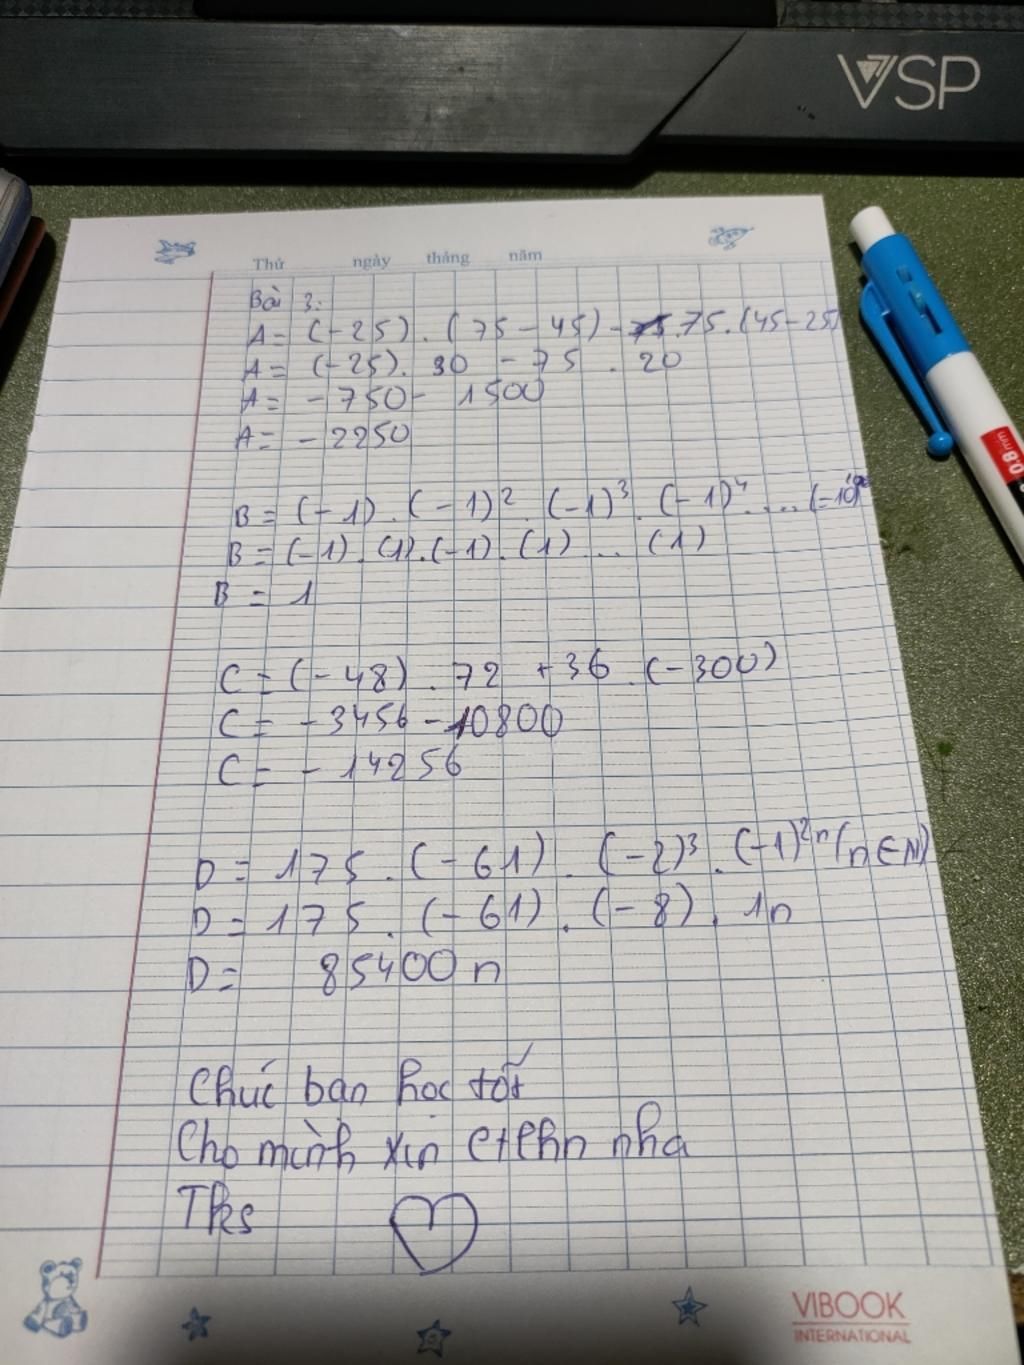 VSP
Thứ ngày tháng năm
Bài 3:
A = (-25) . (75 - 45) - 75 . (45 - 25)
A = (-25) . 30 - 75 . 20
A = - 750 - 1500
A = - 2250
B = (-1) . (-1)² . (-1)³ . (-1)⁴ . ...
B = (-1) . (1) . (-1) . (1) ... (1)
B = 1
C = (-48) . 72 + 36 . (-300)
C = - 3456 - 10800
C = - 14256
D = 175 . (-61) . (-2)³ . (-1)²ⁿ (n ∈ N)
D = 175 . (-61) . (-8) . 1n
D = 85400 n
Chúc bạn học tốt
Cho mình xin ctlhn nha
Tks
0.8 mm
VIBOOK
INTERNATIONAL